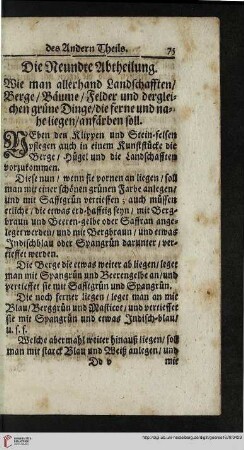 des Andern Theils. 75
Die Neundte Abtheilung.
Wie man allerhand Landschafften/
Berge/ Bäume/ Felder und derglei-
chen grüne Dinge/ die ferne und na-
he liegen/ anfärben soll.
NEben den Klippen und Stein-felsen
pflegen auch in einem Kunststücke die
Berge/ Hügel und die Landschafften
vorzukommen.
Diese nun/ wenn sie vornen an liegen/ soll
man mit einer schönen grünen Farbe anlegen/
und mit Safftgrün vertieffen; auch müssen
etliche/ die etwas erd-hafftig seyn/ mit Berg-
braun und Beeren-gelbe oder Saffran ange-
leget werden/ und mit Bergbraun/ und etwas
Indischblau oder Spangrün darunter/ ver-
tieffet werden.
Die Berge die etwas weiter ab liegen/ leget
man mit Spangrün und Beerengelbe an/ und
vertieffet sie mit Safftgrün und Spangrün.
Die noch ferner liegen/ leget man an mit
Blau/ Berggrün und Masticot/ und vertieffet
sie mit Spangrün und etwas Indisch-blau/
u. s. f.
Welche abermahl weiter hinauß liegen/ soll
man mit starck Blau und Weiß anlegen/ und
Dd v mit